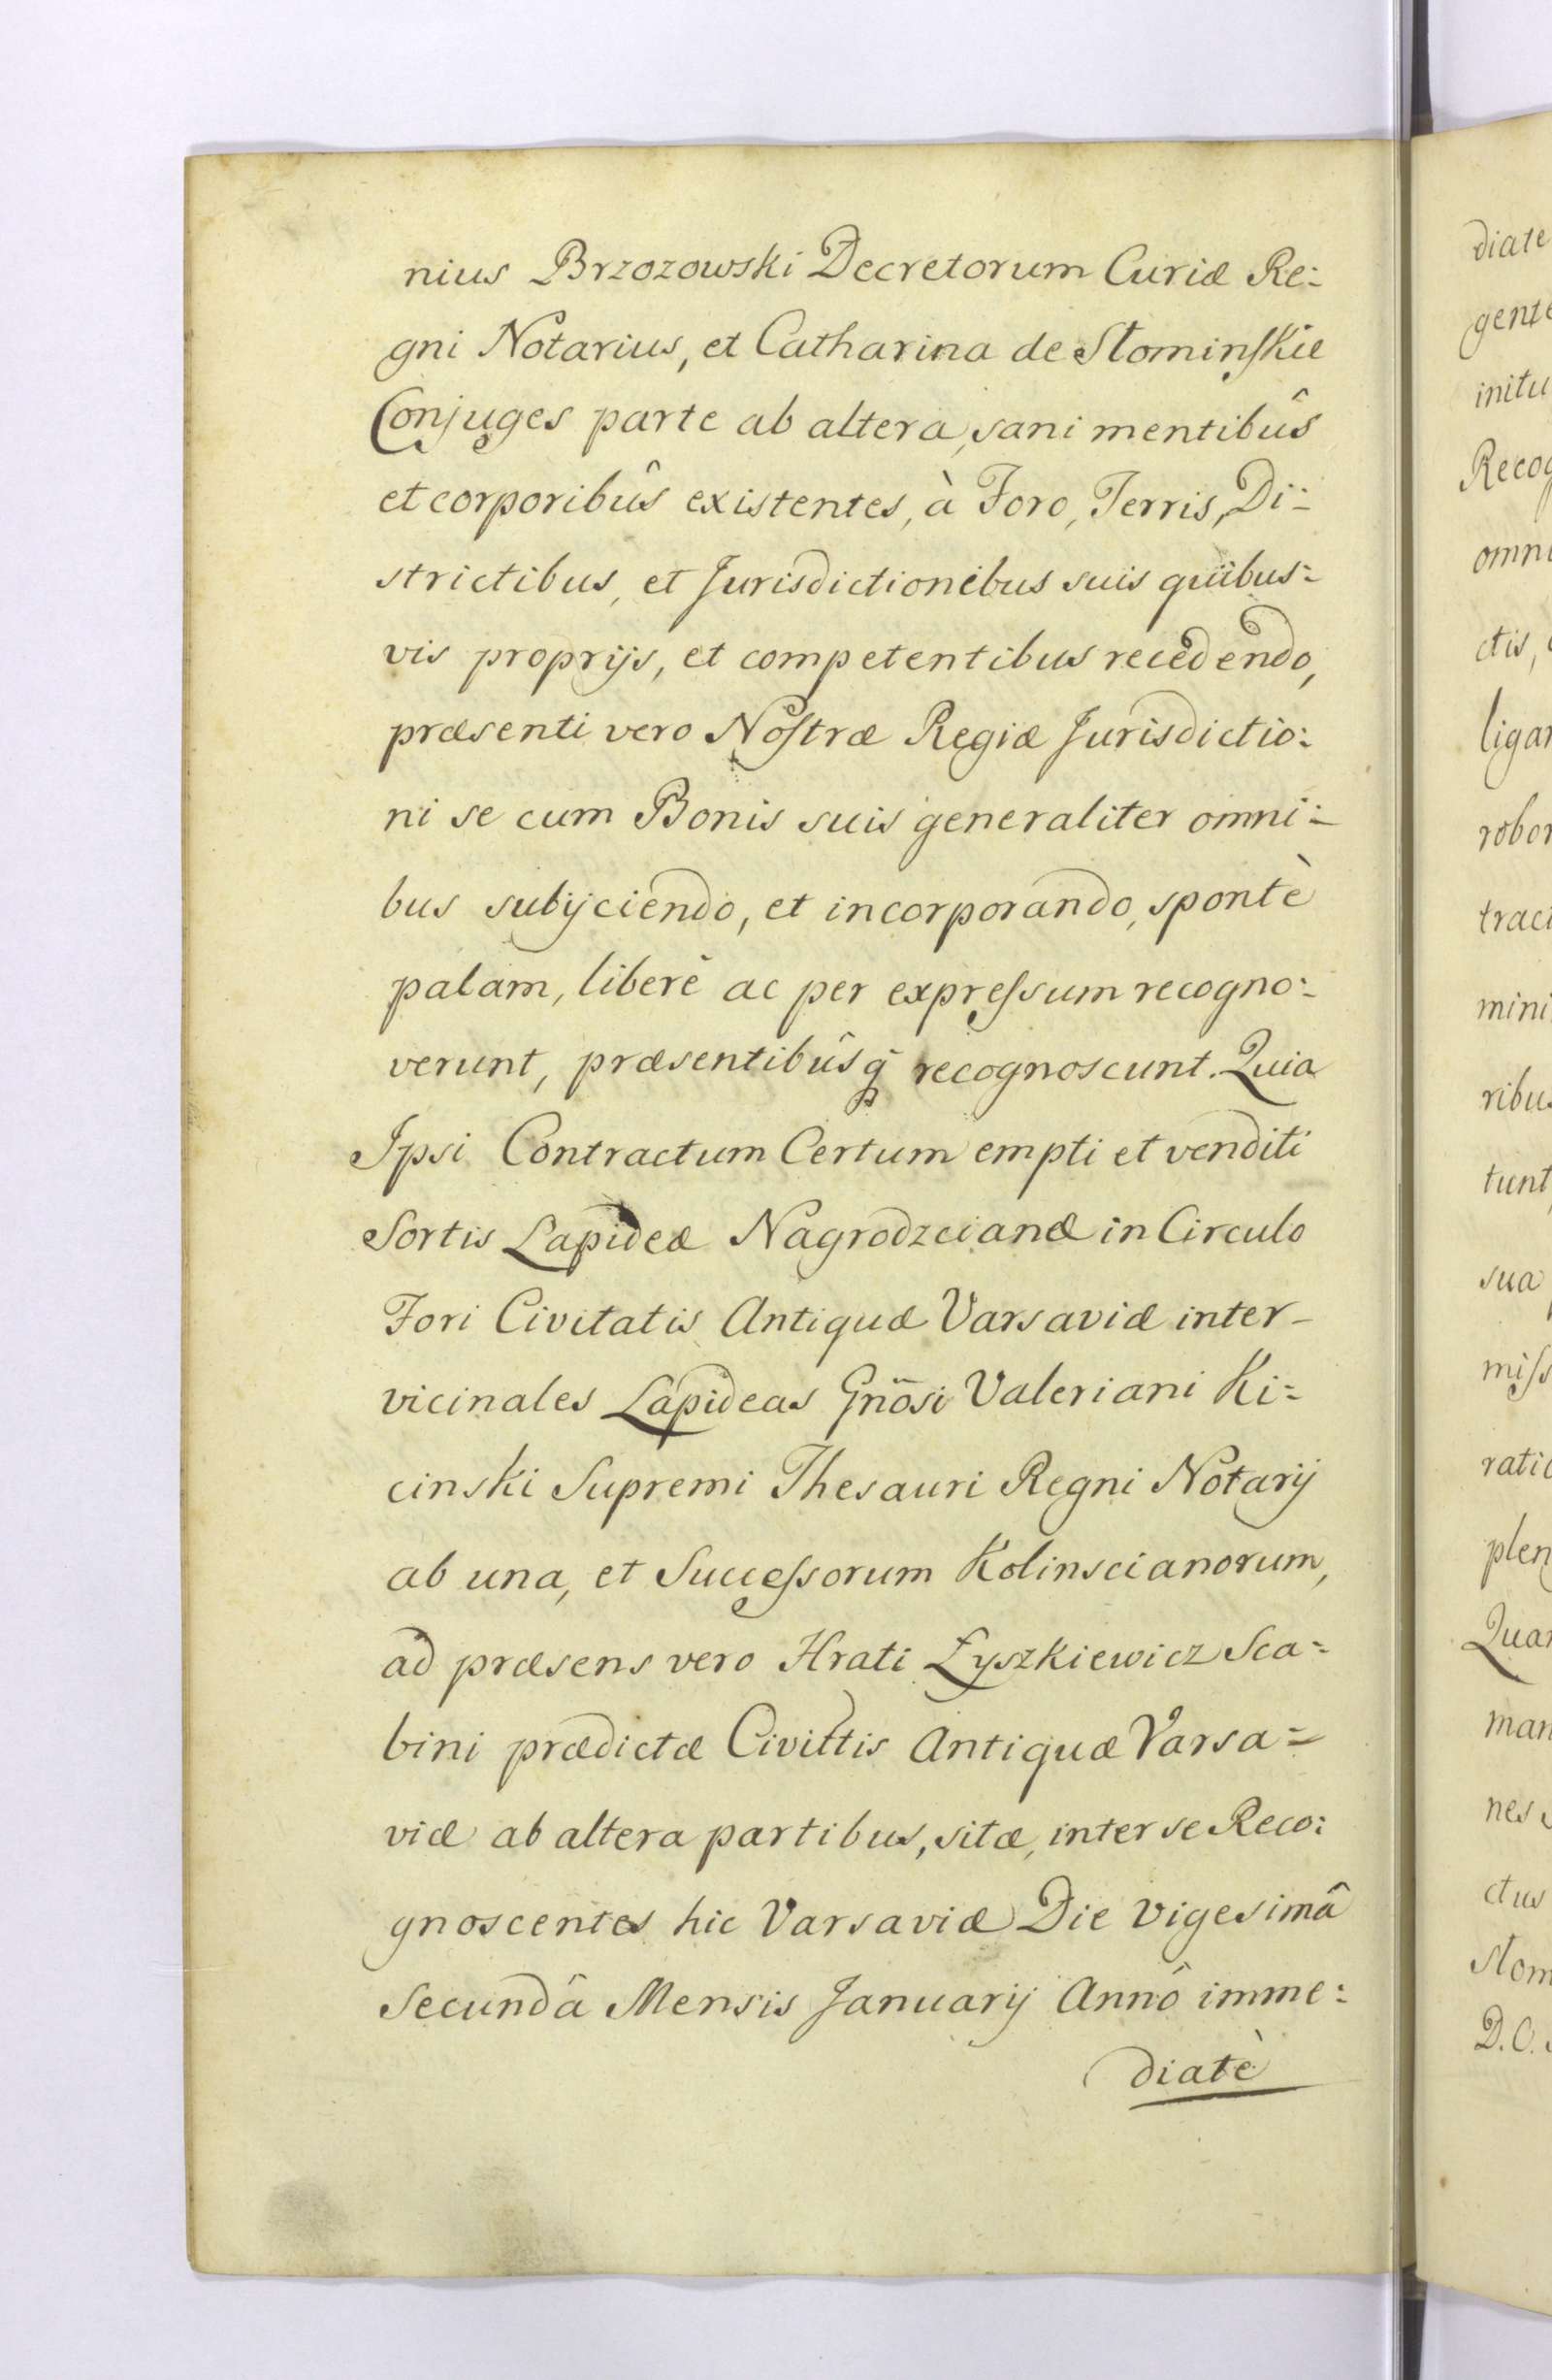 nius Brzozowski Decretorum Curiæ Re:
gni Notarius, et Catharina de Słominſkie
Conjuges parte ab altera, sani mentibûs
et corporibûs existentes, à Foro, Terris, Di:
strictibus, et Jurisdictionibus suis quibus:
vis proprijs, et competentibus recedendo,
præsenti vero Noſtræ Regiæ Jurisdictio:
ni se cum Bonis suis generaliter omni:
bus subijciendo, et incorporando, spontè
palam, liberè ac per expreſsum recogno:
verunt, præsentibûsq̃ recognoscunt. Quia
Ipsi Contractum Certum empti et venditi
Sortis Lapideæ Nagrodzcianæ in Circulo
Fori Civitatis Antiquæ Varsaviæ inter-
vicinales Lapideas Gn̈osi Valeriani Ki=
cinski Supremi Thesauri Regni Notarij
ab una, et Succeſsorum Kolinscianorum,
ad præsens vero Hrati Łyszkiewicz Sca=
bini prædictæ Civittis Antiquæ Varsa=
viæ ab altera partibus, sitæ, inter se Reco:
gnoscentes hic Varsaviæ Die vigesimâ
Secundâ Mensis Januarij Annô imme:
diatè
diate
gente
initu
Recog
omni
ctis,
ligan
robor
tract
mini
ribus
tunt
sua
miſs
ratio
plen
Quar
man
nes
ctus
Słom
D.O.